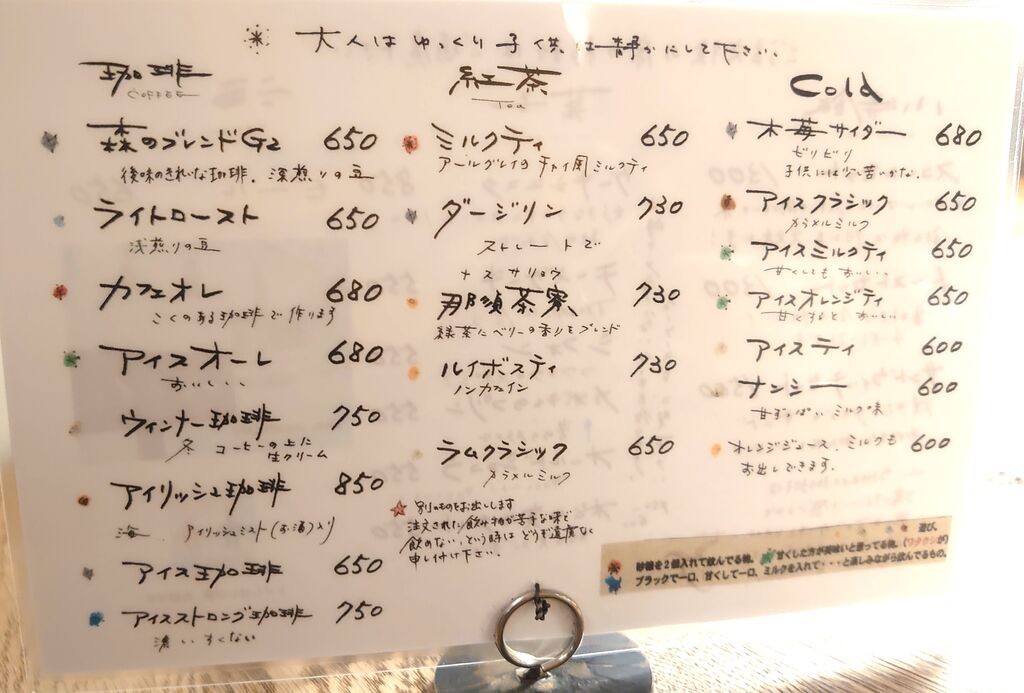 大人はゆっくり子供は静かにして下さい、
珈琲
COFFEE
森のブレンドG2 650
後味のきれいな珈琲、深煎りの豆
ライトロースト 650
浅煎りの豆
カフェオレ 680
こくのある珈琲で作ります
アイスオーレ 680
おいしい、
ウィンナー珈琲 750
冬 コーヒーの上に
生クリーム
アイリッシュ珈琲 850
海 アイリッシュミスト(お酒)入り
アイス珈琲 650
アイスストロング珈琲 750
濃い、すくない
紅茶
Tea
ミルクティ 650
アールグレイの チャイ風ミルクティ
ダージリン 730
ストレートで
ナスサリョウ
那須茶寮 730
緑茶にベリーの香りをブレンド
ルイボスティ 730
ノンカフェイン
ラムクラシック 650
カラメルミルク
別のものをお出しします
注文された飲み物が苦手な味で
飲めない、という時は どうぞ遠慮なく
申し付け下さい、
Cold
木苺サイダー 680
ビリビリ
子供には少し苦いかな、
アイスクラシック 650
カラメルミルク
アイスミルクティ 650
甘くしても おいしい、
アイスオレンジティ 650
甘くすると おいしい
アイスティ 600
ナンシー 600
甘ずっぱい ミルク味
オレンジジュース、ミルクも 600
お出しできます、
遊び、
砂糖を2個入れて飲んでる物、 甘くした方が美味いと思ってる物、(ワタクシが)
ブラックで一口、甘くして一口、ミルクを入れて・・・と楽しみながら飲んでるもの、